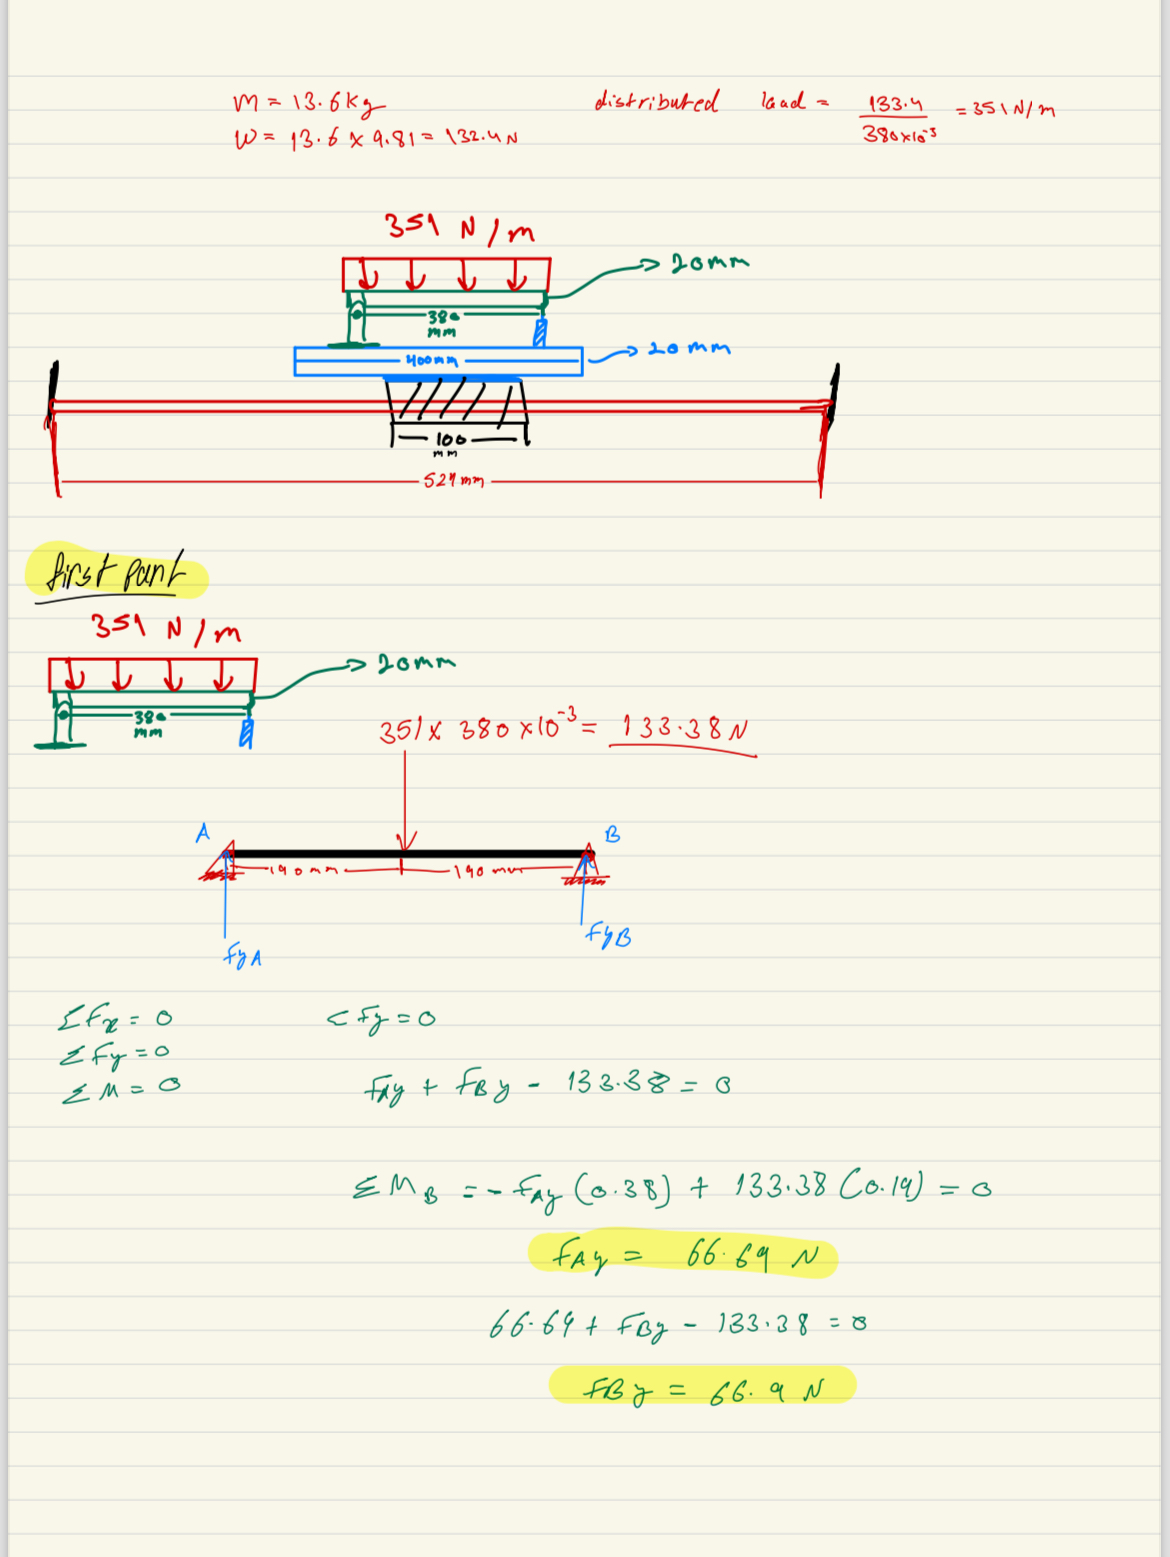 m = 13.6kg
W = 13.6 x 9.81 = 132.4 N
distributed load = 133.4 / 380x10⁻³ = 351 N/m
351 N/m
20mm
380 mm
400mm
20mm
100 mm
527mm
first part
351 N/m
20mm
380 mm
351 x 380 x10⁻³ = 133.38 N
A
B
190mm
190 mm
FyA
FyB
ΣFx = 0
ΣFy = 0
ΣFy = 0
ΣM = 0
FAy + FBy - 133.38 = 0
ΣM_B = - FAy (0.38) + 133.38 (0.19) = 0
FAy = 66.69 N
66.69 + FBy - 133.38 = 0
FBy = 66.9 N